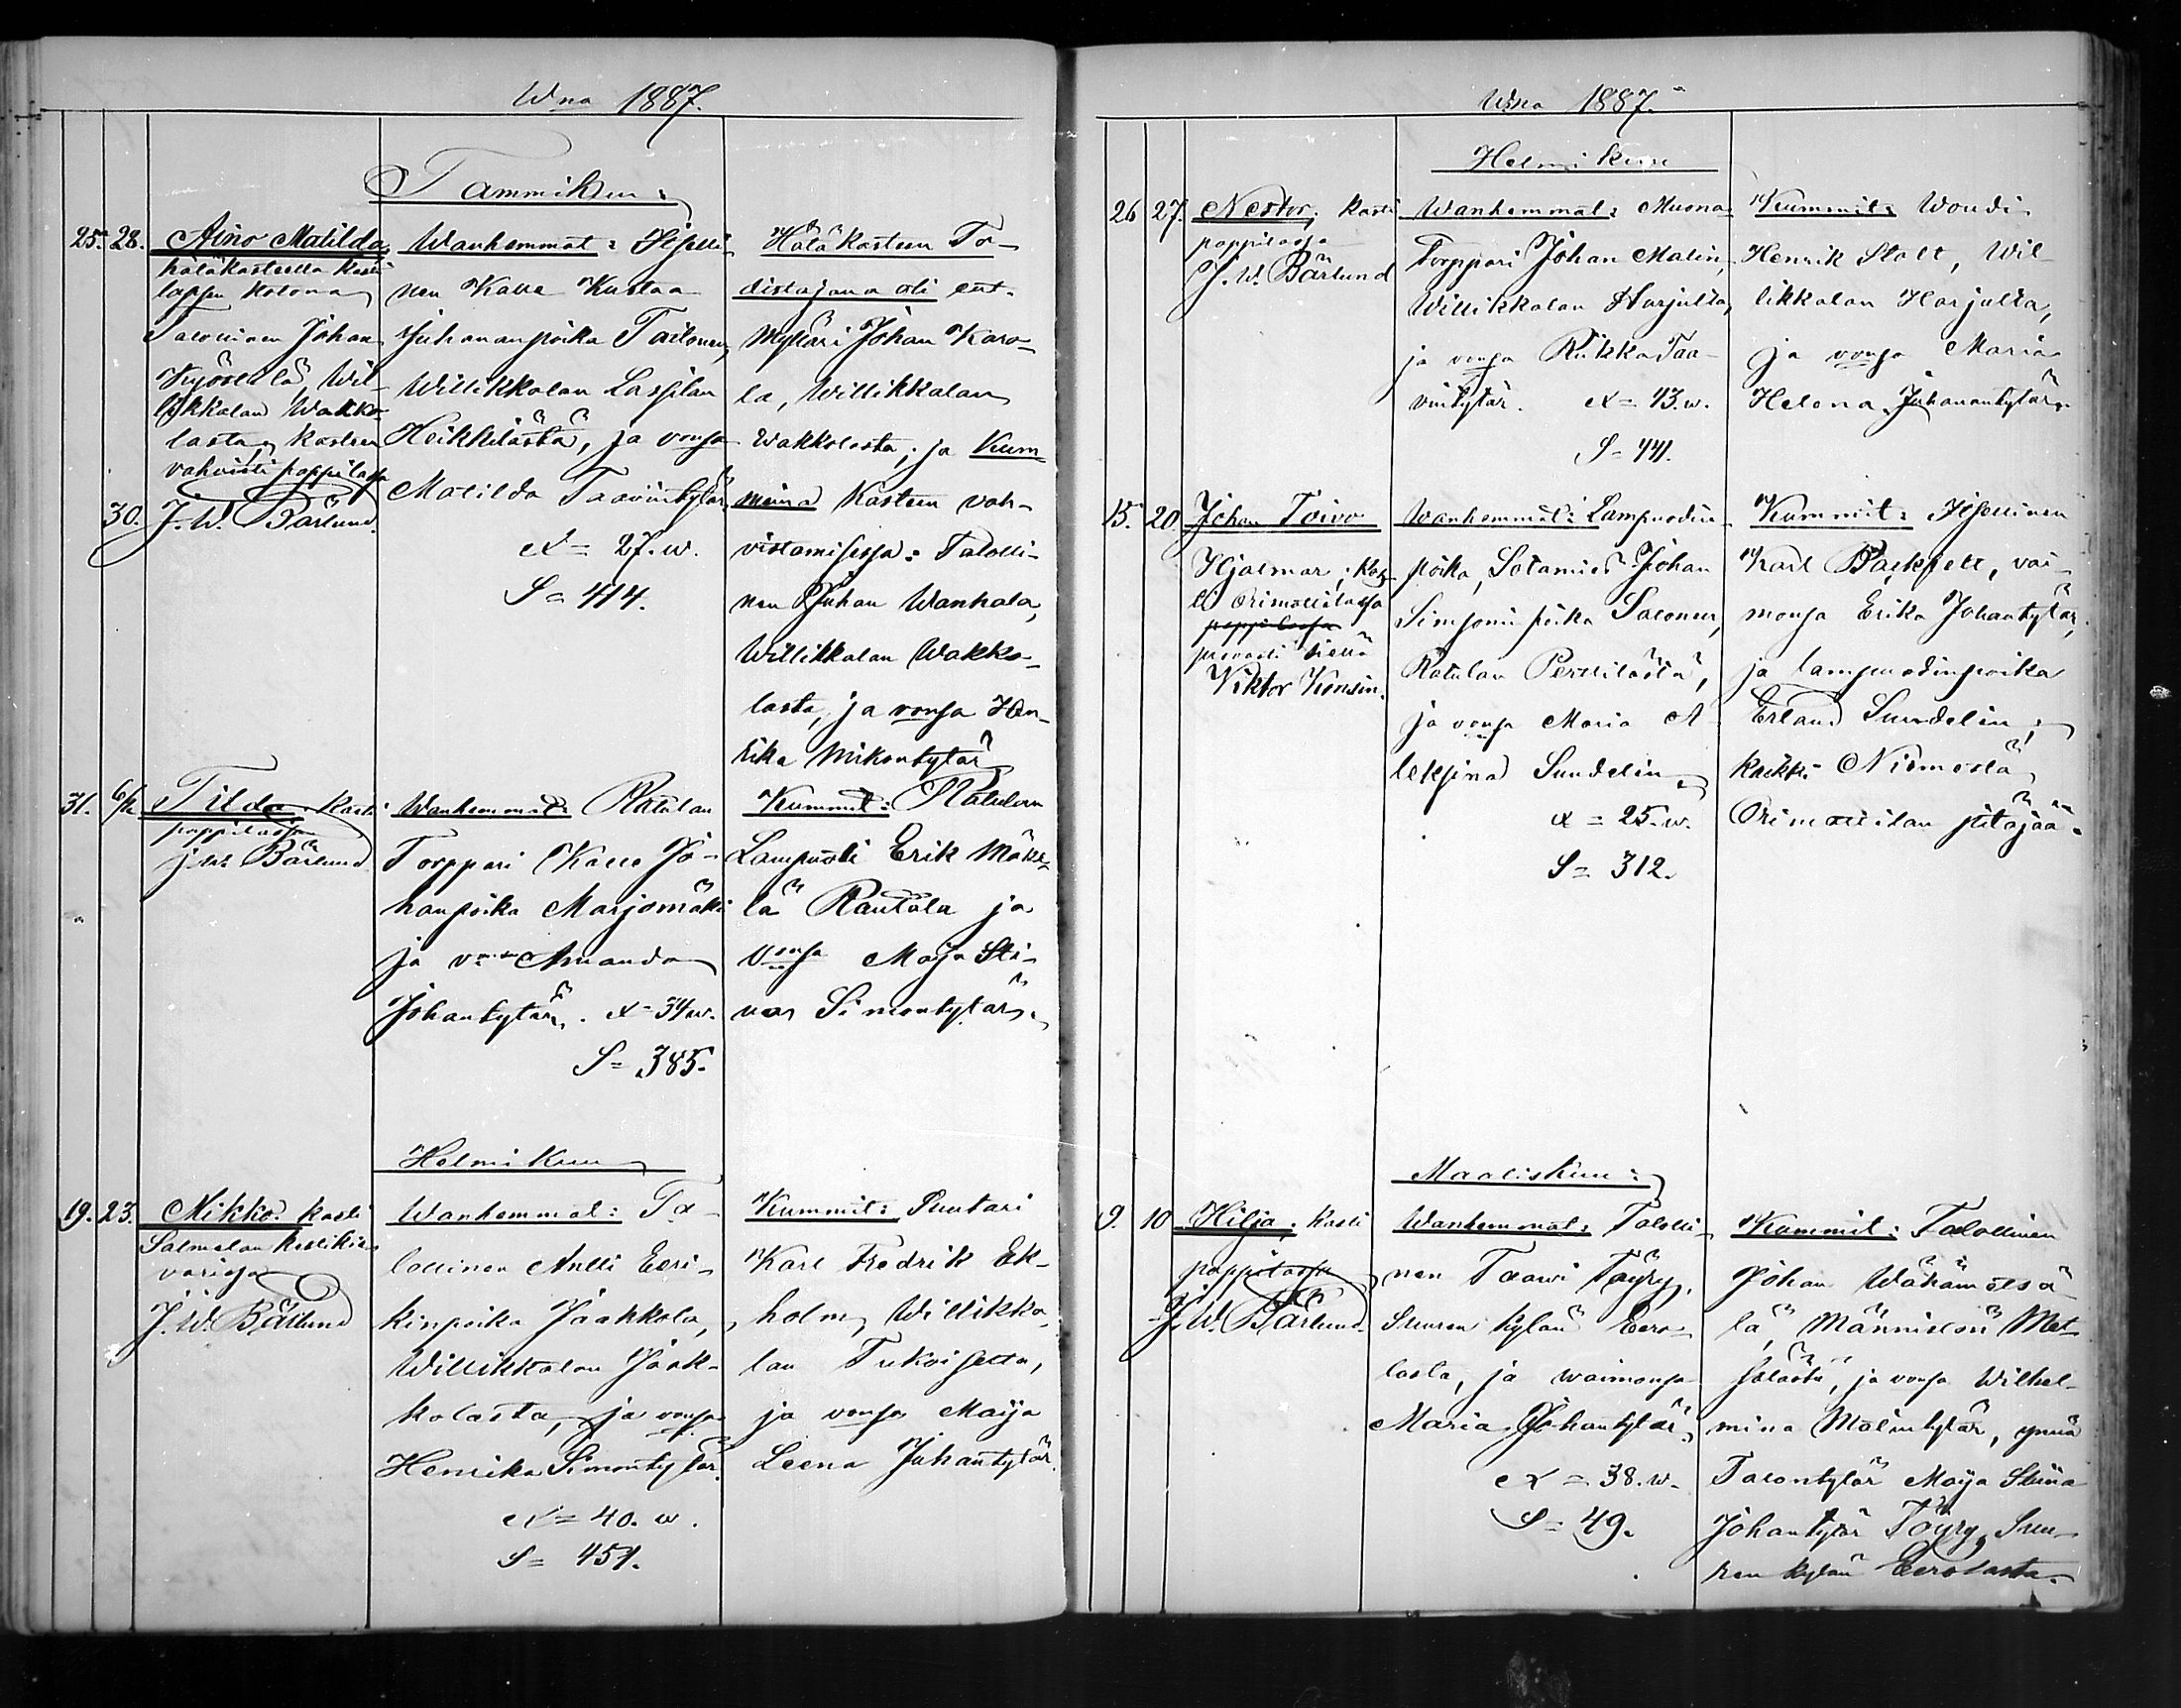 Wna 1887.
Tammikuu:
25. 28. Aino Matilda,
hätäkasteella kasti
lapsen kotona
Talollinen Johan
Kyöstilä, Wil-
likkalan Wakko-
lasta, kasteen
vahvisti pappilassa
30. J. W. Bärlund.
Wanhemmat: Itselli-
nen Kalle Kustaa
Juhananpoika Tailonen,
Willikkalan Lassilan
Heikkilästä, ja vonsa
Matilda Taavintytär,
ex = 27. w.
S = 414.
Hätäkasteen To-
distajana oli ent.
Mylläri Johan Karo-
la, Willikkalan
Wakkolasta, ja Kum-
meina kasteen vah-
vistamisessa: Talolli-
nen Juhan Wanhala,
Willikkalan Wakko-
lasta, ja vonsa Hen-
rika Mikontytär
31. 6/2. Tilda. kasti
pappilassa
J. W. Bärlund.
Wanhemmat: Ratulan
Torppari Kalle Jo-
hanpoika Marjomäki
ja Amanda
Johantytär. ex = 34 w.
S = 385.
Kummit: Ratulan
Lampuoti Erik Mäke-
lä Rautala ja
vonsa Maja Sti-
na Simontytär.
Helmikuu
19. 23. Mikko. kasti
Salmelan
J. W. Bärlund
Wanhemmat: Ta-
lollinen Antti Eeri-
kinpoika Jaakkola,
Willikkalan Jaak-
kolasta, ja vonsa
Henrika Simontytär.
ex = 40. w.
S = 451.
Kummit: Puutari
Karl Fredrik Ek-
holm, Willikka-
lan
ja vonsa Maija
Leena Juhantytär.
Wna 1887.
Helmikuu
26 27. Nestor; kasti
pappilassa
J. W. Bärlund
Wanhemmat: Muona
Torppari Johan Malin,
Willikkalan Harjulta,
ja vonsa Riikka Taa-
vintytär. ex = 43. w.
S = 441.
Kummit: Woudi
Henrik Stolt, Wil-
likkalan Harjulta,
ja vonsa Maria
Helena Juhanantytär.
15. 20. Johan Toivo
Hjalmar; kas-
ti Orimattilassa
pappilassa
provasti siellä
Viktor Konsin.
Wanhemmat: Lampuodin-
poika, Sotamies Johan
Simsoninpoika Salonen,
Ratulan Perttilästä,
ja vonsa Maria A-
leksina Sundelin
ex = 25. w.
S = 312.
Kummit: Itsellinen
Karl Backfelt, vai-
monsa Erika Johantytär,
ja lampuodinpoika
Erland Sundelin;
kaikki Niemestä
Orimattilan pitäjää.
Maaliskuu:
9. 10 Hilja; kasti
pappilassa
J. W. Bärlund.
Wanhemmat: Talolli-
nen Taavi Töyry,
Suuren kylän Eero-
lasta, ja waimonsa
Maria Johantytär.
ex = 38. w.
S = 49.
Kummit: Talollinen
Johan Wähämetsä-
lä, Männistön Met-
sälästä, ja vonsa Wilhel-
mina Malintytär, ynnä
Talontytär Maija Stiina
Johantytär Töyry, Suu-
ren kylän Eerolasta.